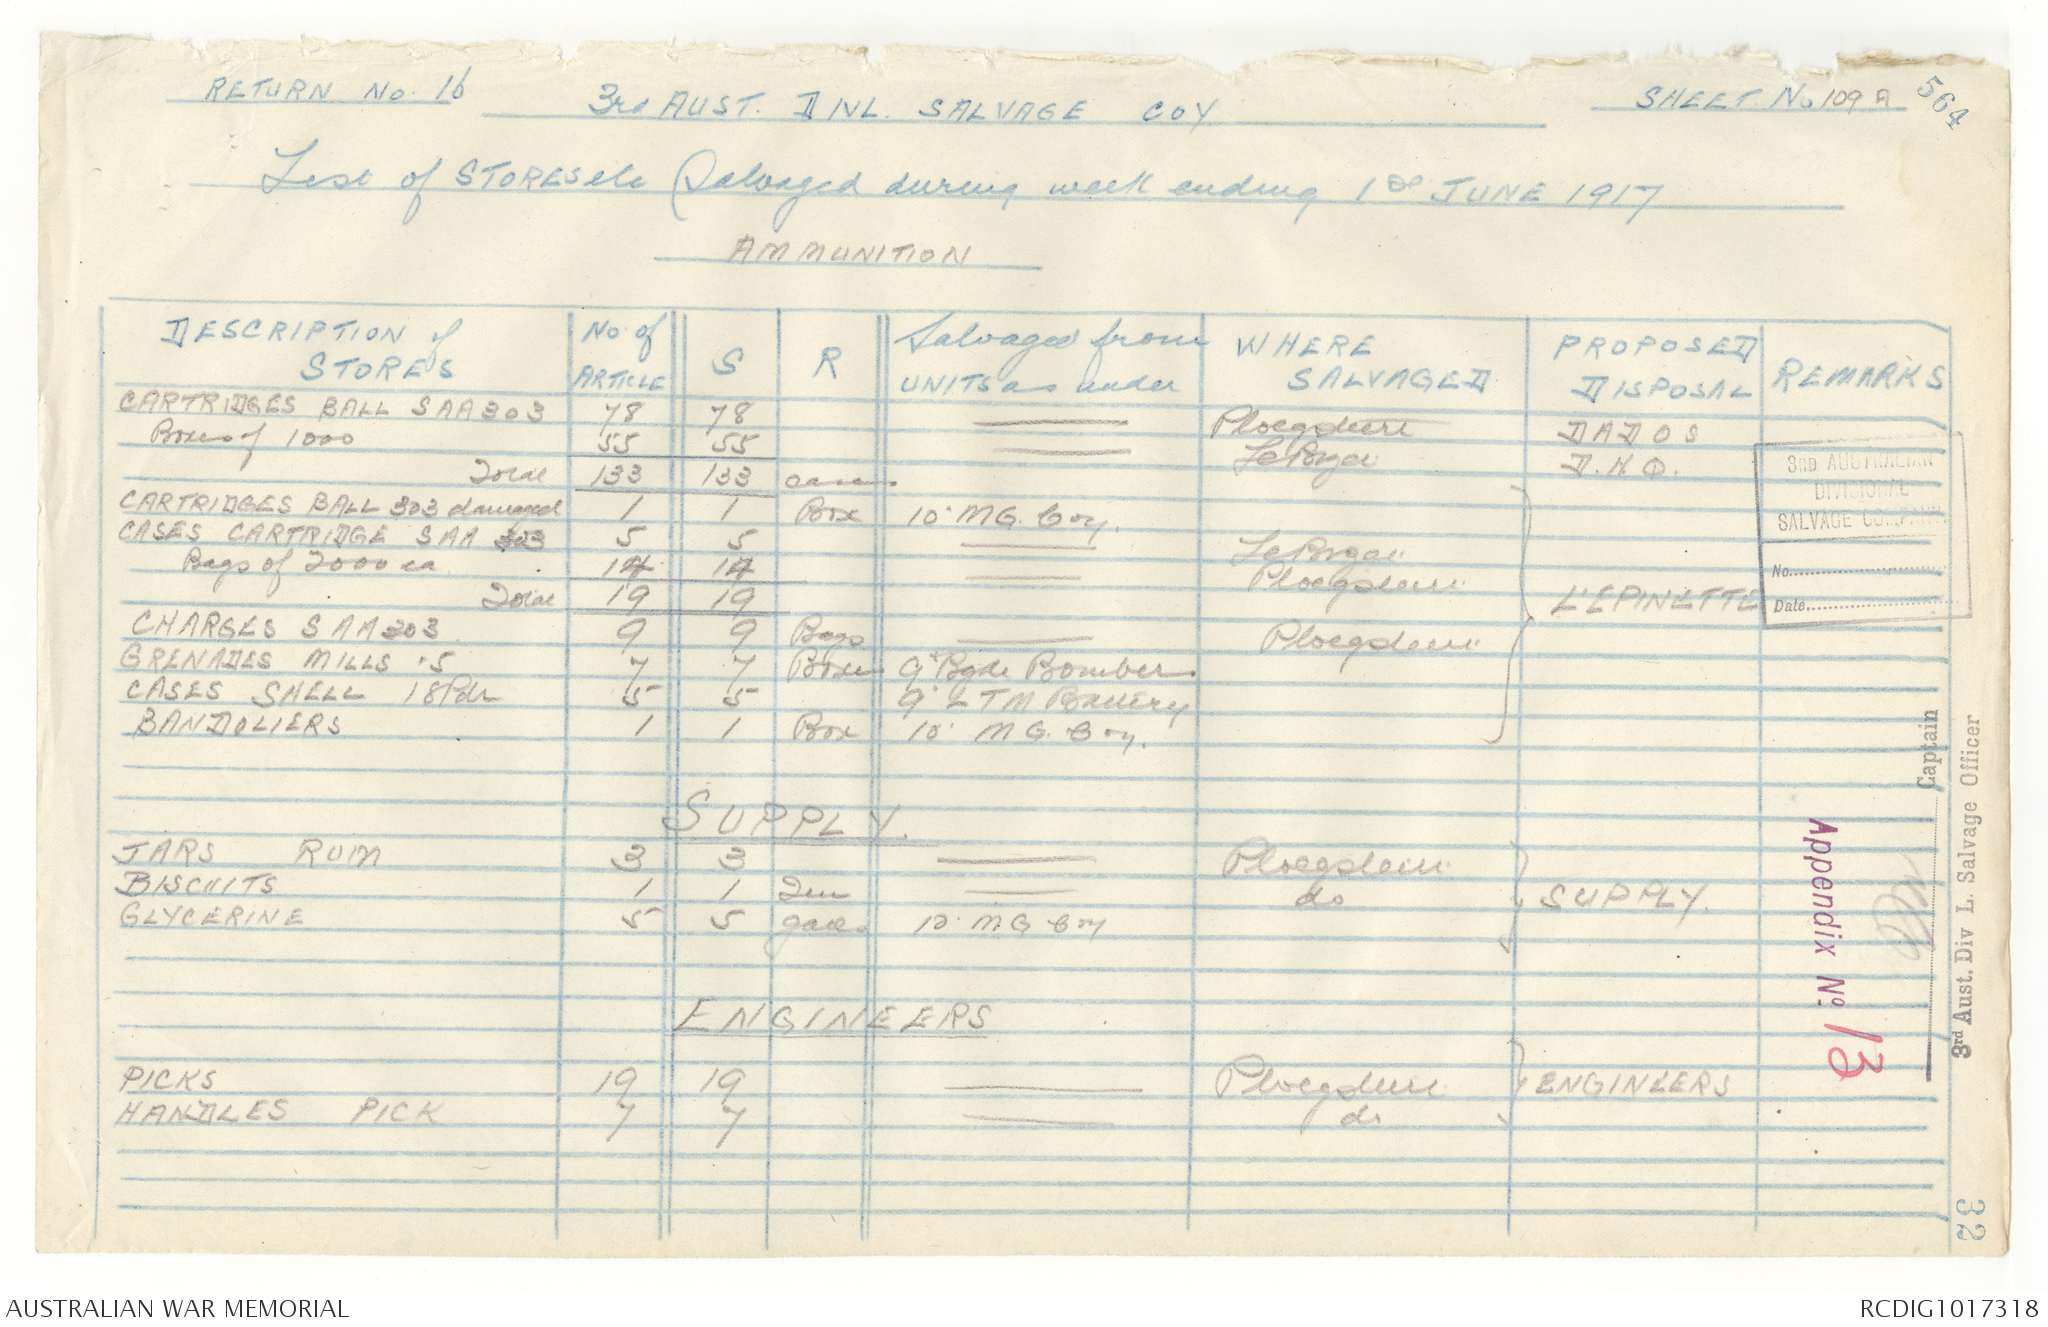 RETURN No. 16 3rd AUST. DNL. SALVAGE COY SHEET No 109A 564
List of STORES etc Salvaged during week ending 1st JUNE 1917
AMMUNITION
DESCRIPTION of STORES No. of ARTICLE S R Salvaged from UNITS as under WHERE SALVAGED PROPOSED DISPOSAL REMARKS
CARTRIDGES BALL SAA 303 78 78 Ploegsteert DADOS
Boxes of 1000 55 55 Le Bizet D.H.Q.
Total 133 133 cases
CARTRIDGES BALL 303 damaged 1 1 Box 10' MG. Coy.
CASES CARTRIDGE SAA 303 5 5 Le Bizet
Bags of 2000 ea 14 14 Ploegsteert
Total 19 19 L'EPINETTE
CHARGES SAA 303 9 9 Bags Ploegsteert
GRENADES MILLS .5 7 7 Boxes 9' Bgde Bombers
CASES SHELL 18Pdr 5 5 9' LTM Battery
BANDOLIERS 1 1 Box 10' MG. Coy.
SUPPLY.
JARS RUM 3 3 Ploegsteert
BISCUITS 1 1 Tin do SUPPLY.
GLYCERINE 5 5 galls 10' MG Coy
ENGINEERS
PICKS 19 19 Ploegsteert ENGINEERS
HANDLES PICK 7 7 do
3RD AUSTRALIAN
DIVISIONAL
SALVAGE COMPANY.
No.
Date
Captain
3rd Aust. Div L. Salvage Officer
Appendix No 13
32
AUSTRALIAN WAR MEMORIAL RCDIG1017318